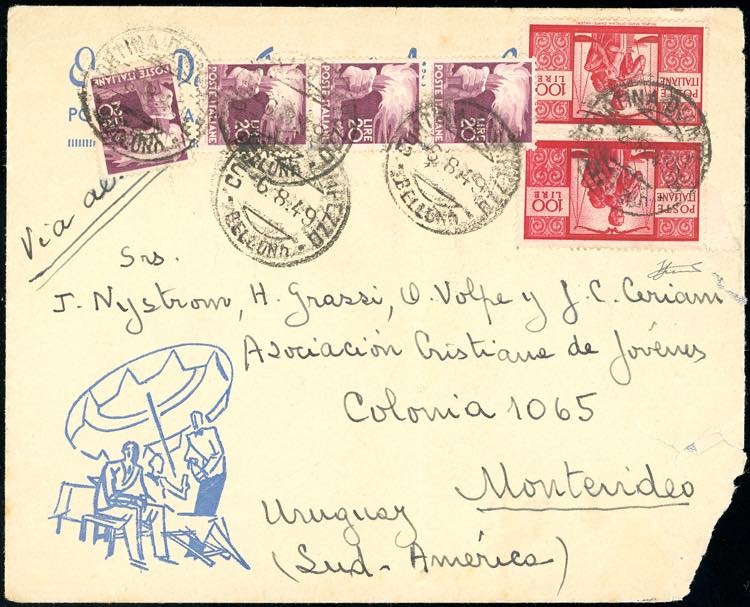 POSTE ITALIANE
LIRE 20
POSTE ITALIANE
LIRE 20
POSTE ITALIANE
LIRE 20
POSTE ITALIANE
LIRE 20
POSTE ITALIANE
100 LIRE
POSTE ITALIANE
100 LIRE
6.8.49
BELLUNO
8.49
BELLUNO
Via
Srs.
J. Nystrom, H. Grassi, O. Volpe y J. C. Ceriani
Asociación Cristiana de Jóvenes
Colonia 1065
Montevideo
Uruguay
(Sud-América)